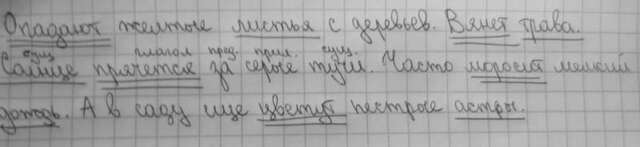 Опадают желтые листья с деревьев. Вянет трава.
сущ. глагол пред. прил. сущ.
Солнце прячется за серые тучи. Часто моросит мелкий
дождь. А в саду еще цветут пестрые астры.